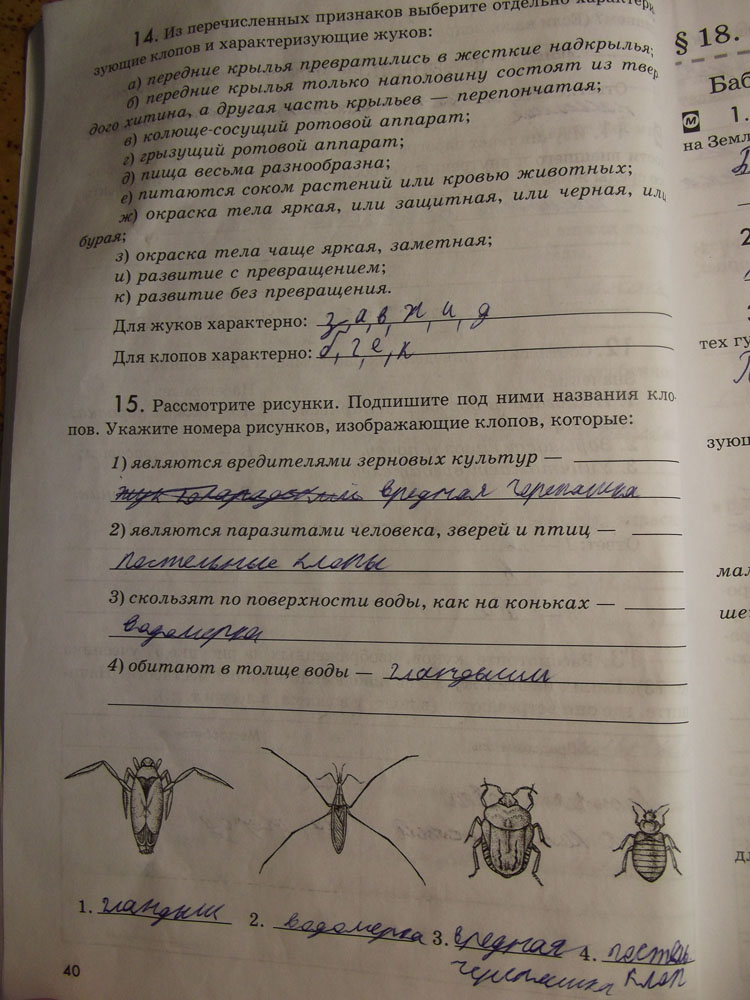 14. Из перечисленных признаков выберите отдельно характери
зующие клопов и характеризующие жуков:
а) передние крылья превратились в жесткие надкрылья;
б) передние крылья только наполовину состоят из твер
дого хитина, а другая часть крыльев — перепончатая;
в) колюще-сосущий ротовой аппарат;
г) грызущий ротовой аппарат;
д) пища весьма разнообразна;
е) питаются соком растений или кровью животных;
ж) окраска тела яркая, или защитная, или черная, или
бурая;
з) окраска тела чаще яркая, заметная;
и) развитие с превращением;
к) развитие без превращения.
Для жуков характерно: з, а, в, ж, и, д
Для клопов характерно: б, г, е, к
15. Рассмотрите рисунки. Подпишите под ними названия кло-
пов. Укажите номера рисунков, изображающие клопов, которые:
1) являются вредителями зерновых культур —
вредная черепашка
2) являются паразитами человека, зверей и птиц —
постельные клопы
3) скользят по поверхности воды, как на коньках —
водомерка
4) обитают в толще воды — гландыши
1. гландыш 2. водомерка 3. вредная 4. постель
черепашка клоп
40
§ 18.
Баб
м 1.
на Земл
2
тех гу
зующ
мал
шее